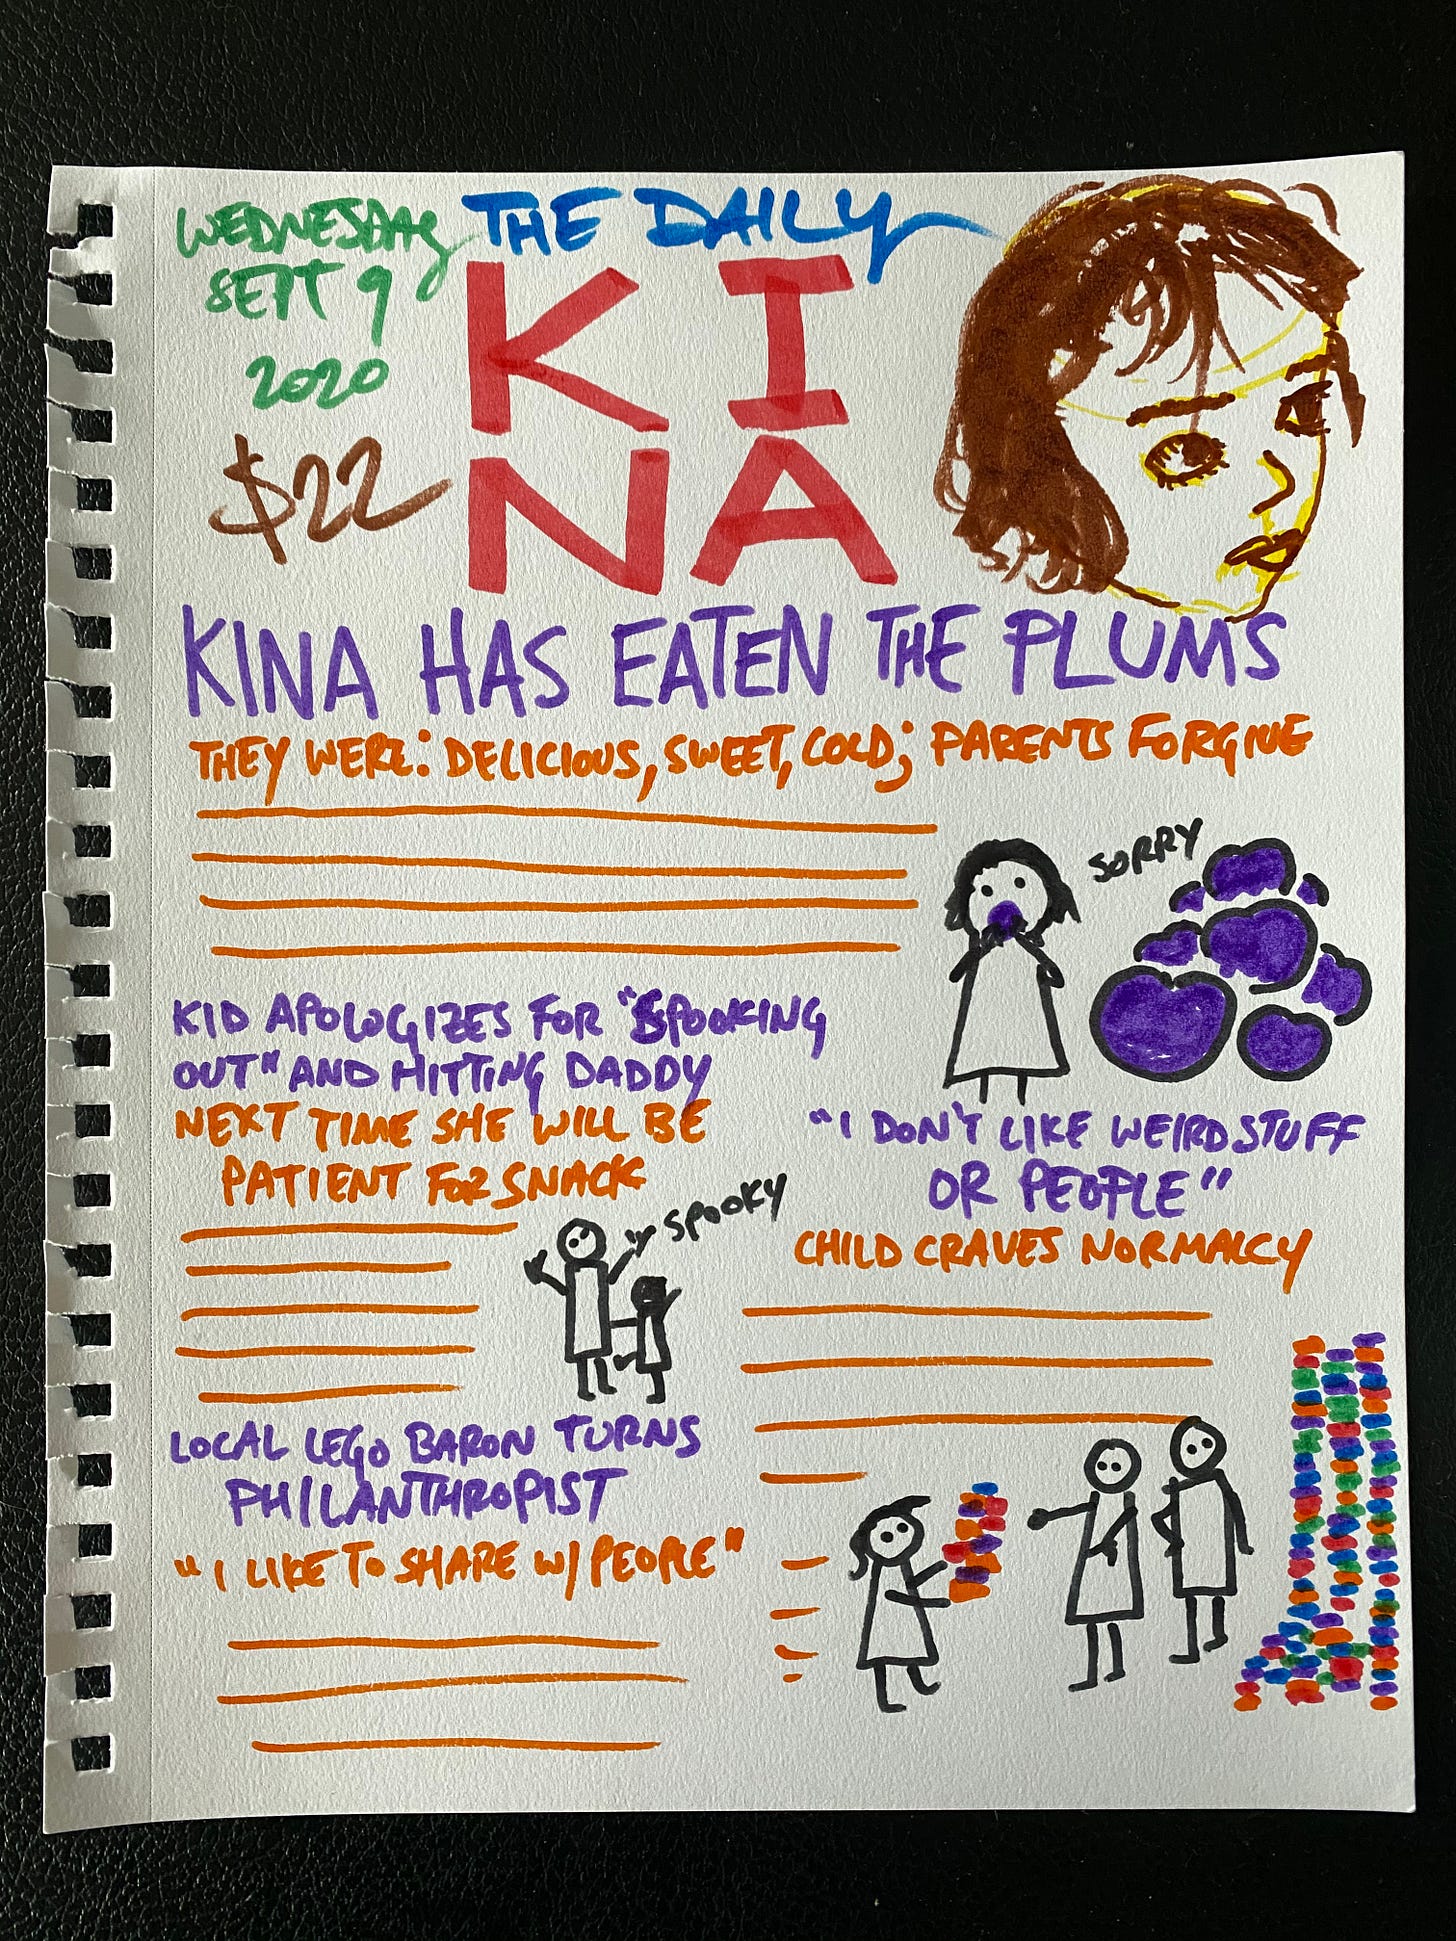 WEDNESDAY
SEPT 9
2020
$22
THE DAILY
KI
NA
KINA HAS EATEN THE PLUMS
THEY WERE: DELICIOUS, SWEET, COLD; PARENTS FORGIVE
SORRY
KID APOLOGIZES FOR "SPOOKING
OUT" AND HITTING DADDY
NEXT TIME SHE WILL BE
PATIENT FOR SNACK
SPOOKY
"I DON'T LIKE WEIRD STUFF
OR PEOPLE"
CHILD CRAVES NORMALCY
LOCAL LEGO BARON TURNS
PHILANTHROPIST
"I LIKE TO SHARE W/ PEOPLE"